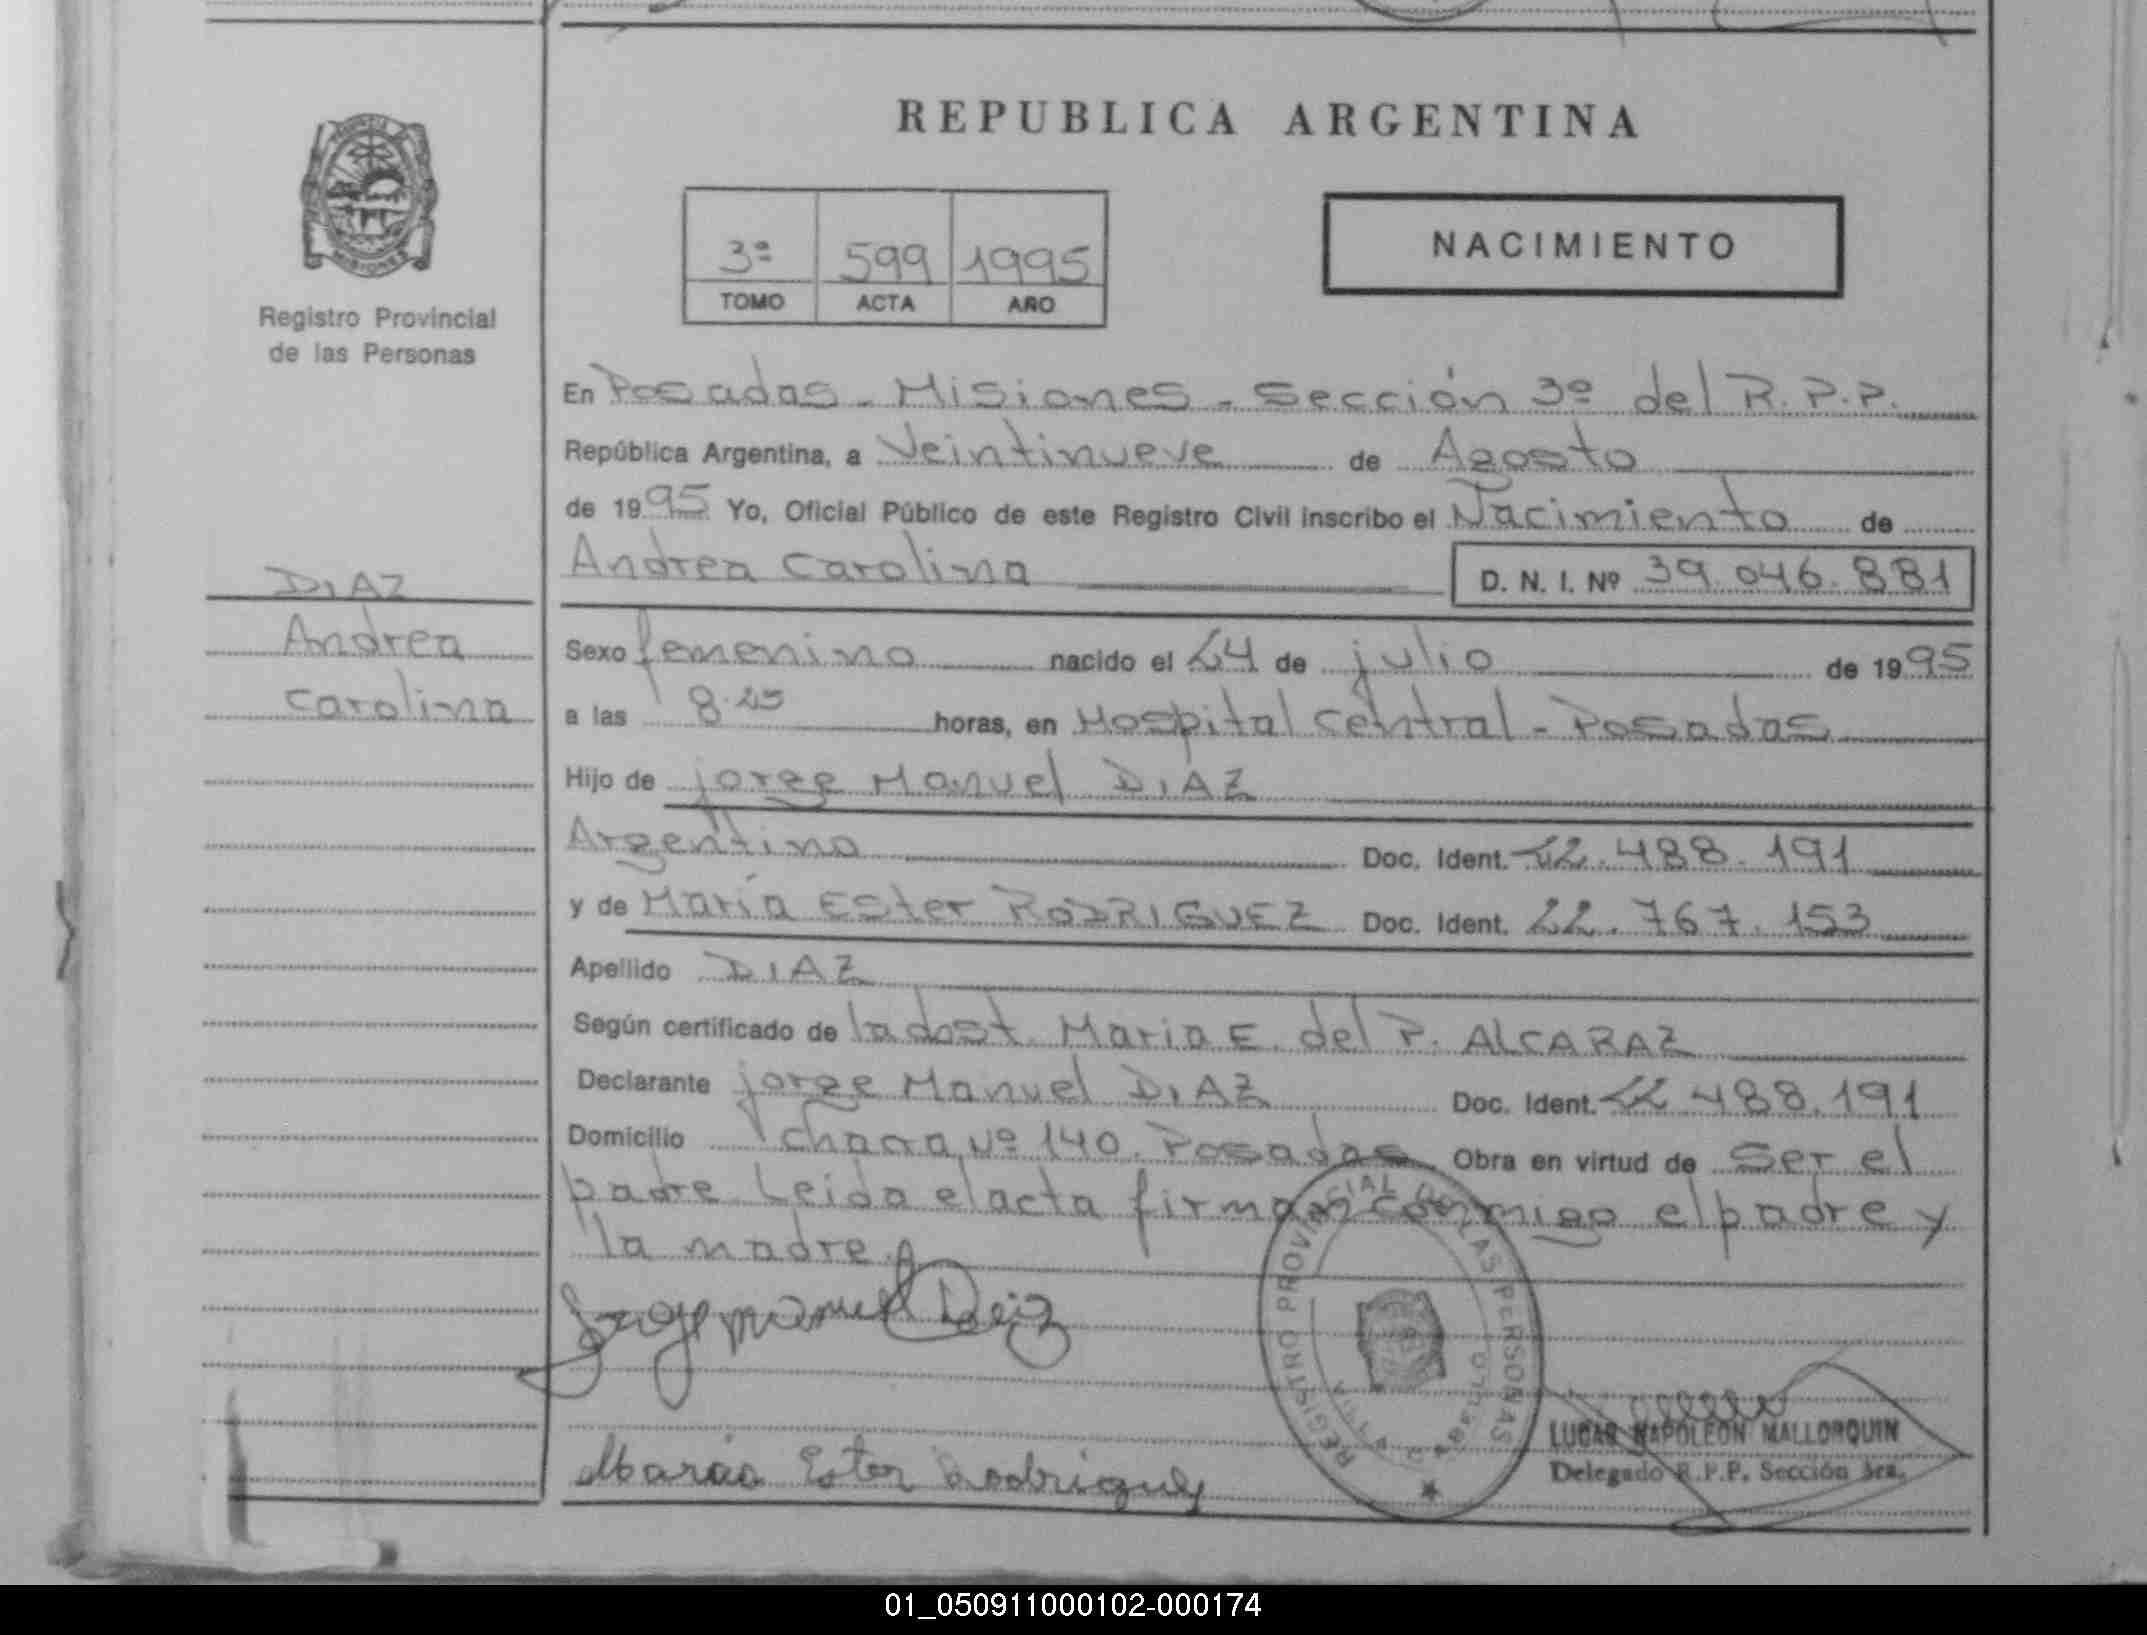 REPUBLICA ARGENTINA
MISIONES
Registro Provincial
de las Personas
3ª 599 1995
TOMO ACTA AÑO
NACIMIENTO
En Posadas - Misiones - Sección 3º del R.P.P.
República Argentina, a Veintinueve de Agosto
de 1995 Yo, Oficial Público de este Registro Civil inscribo el Nacimiento de
Andrea Carolina D. N. I. Nº 39.046.881
DIAZ
Andrea
Carolina
Sexo femenino nacido el 24 de julio de 1995
a las 8.25 horas, en Hospital Central - Posadas
Hijo de Jorge Manuel DIAZ
Argentino Doc. Ident. 22.488.191
y de María Ester RODRIGUEZ Doc. Ident. 22.767.153
Apellido DIAZ
Según certificado de la dost. Maria E. del P. ALCARAZ
Declarante Jorge Manuel DIAZ Doc. Ident. 22.488.191
Domicilio chacra Nº 140. Posadas Obra en virtud de Ser el
padre Leida el acta firman conmigo el padre y
la madre.
Jorge manuel Deiz
REGISTRO PROVINCIAL DE LAS PERSONAS
LUCAR NAPOLEON MALLORQUIN
Delegado R.P.P. Sección 3ra.
María Ester Rodriguez
01_050911000102-000174